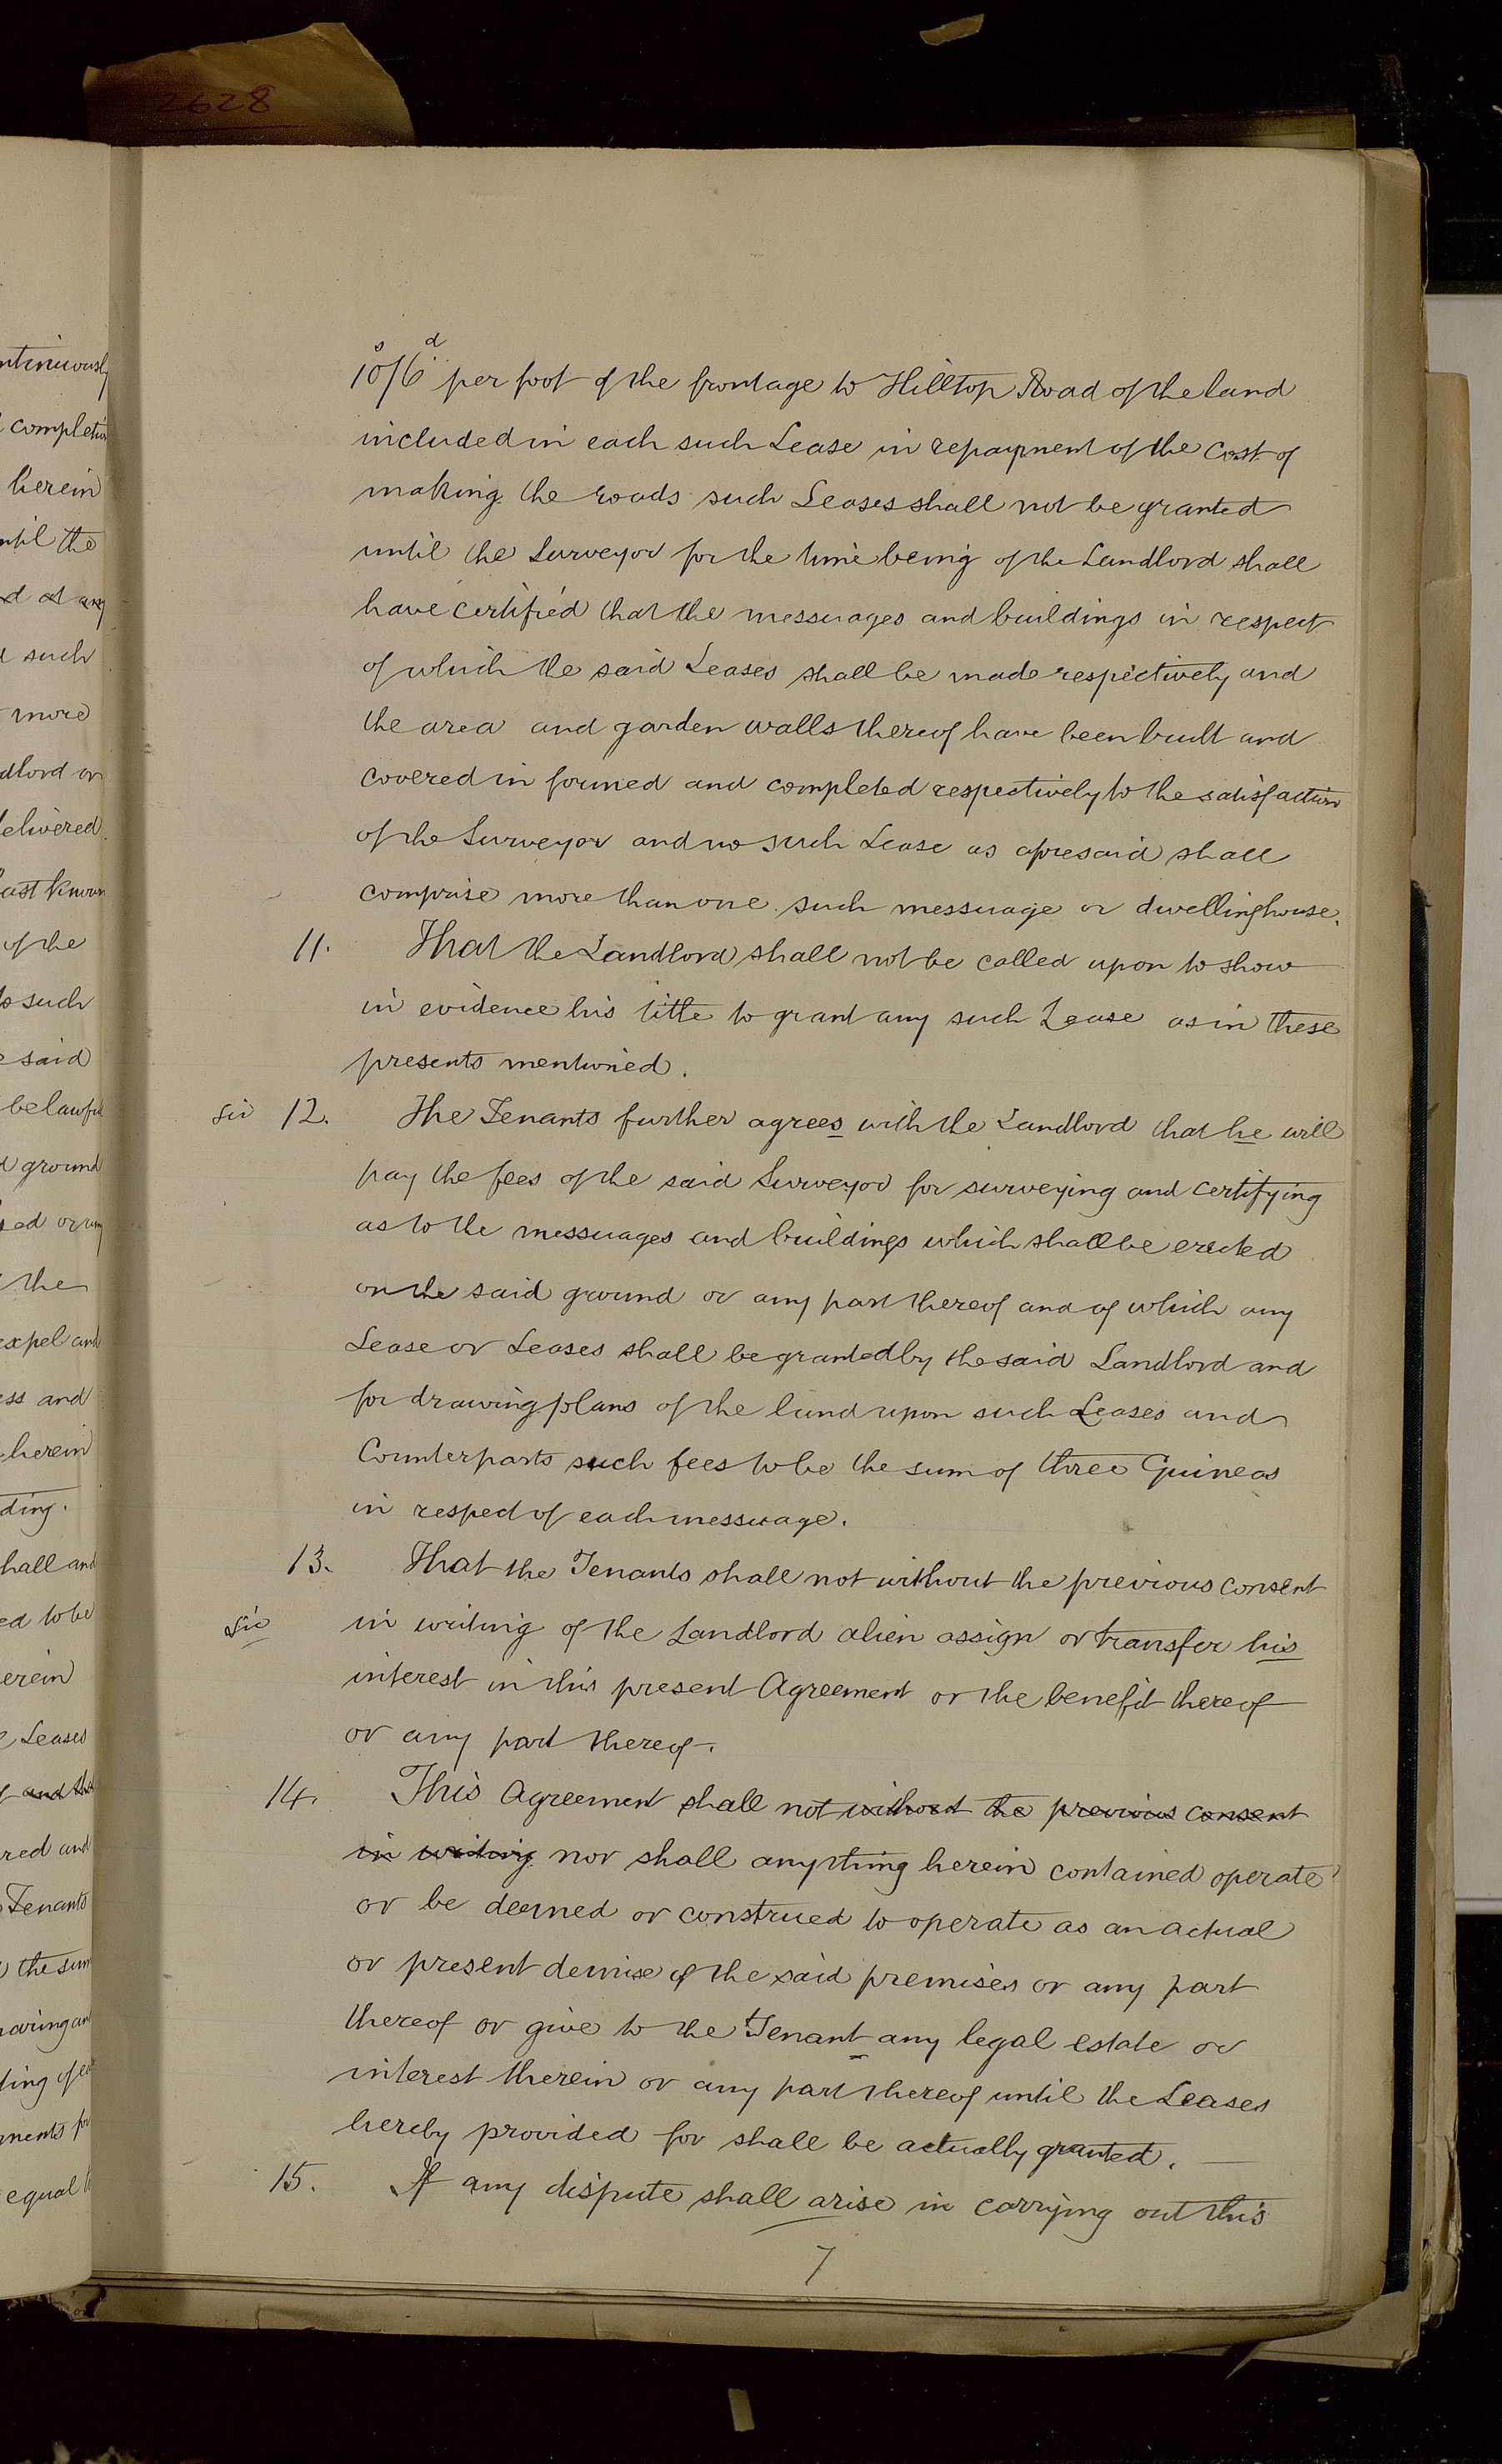 2628
ntinuously
completion
herein
ntil the
d at any
such
more
dlord or
delivered
last known
of the
to such
said
be lawful
d ground
sed or any
the
expel and
ess and
herein
ding.
shall and
ed to be
erein
Leases
and the
red and
Tenants
the sum
aring and
ments for
equal
10s/6d per foot of the frontage to Hilltop Road of the land
included in each such Lease in repayment of the cost of
making the roads such Leases shall not be granted
until the Surveyor for the time being of the Landlord shall
have certified that the messuages and buildings in respect
of which the said Leases shall be made respectively and
the area and garden walls thereof have been built and
covered in formed and completed respectively to the satisfaction
of the Surveyor and no such Lease as aforesaid shall
comprise more than one such messuage or dwellinghouse.
11. That the Landlord shall not be called upon to show
in evidence his title to grant any such Lease as in these
presents mentioned.
sic 12. The Tenants further agrees with the Landlord that he will
pay the fees of the said Surveyor for surveying and certifying
as to the messuages and buildings which shall be erected
on the said ground or any part thereof and of which any
Lease or Leases shall be granted by the said Landlord and
for drawing plans of the land upon such Leases and
Counterparts such fees to be the sum of three Guineas
in respect of each messuage.
13. That the Tenants shall not without the previous consent
sic in writing of the Landlord alien assign or transfer his
interest in this present Agreement or the benefit thereof
or any part thereof.
14. This Agreement shall not without the previous consent
in writing nor shall anything herein contained operate
or be deemed or construed to operate as an actual
or present demise of the said premises or any part
thereof or give to the Tenant any legal estate or
interest therein or any part thereof until the Leases
hereby provided for shall be actually granted.
15. If any dispute shall arise in carrying out this
7